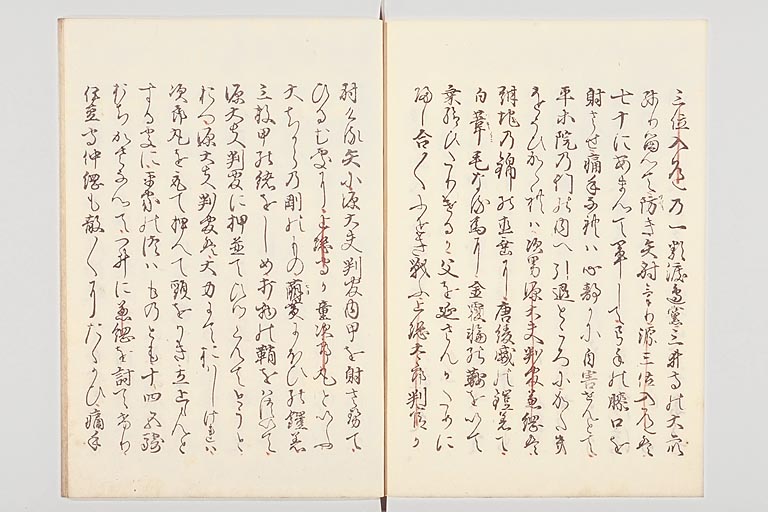 三位入道の一類渡邊黨三井寺の大衆
殘り留て防き矢射ﾞり源三位入道は
七十にあまんて軍して弓手の膝口を
射させ痛手なれは心靜かに自害せんとて
平等院の門の内へ引退ところにかたき
をそひかゝれは次男源大夫判官兼綱は
紺地の錦の直垂に唐綾威の鎧着て
白葦毛なる馬に金覆輪の鞍を以て
乗給ひたりけるか父を延さんかために
歸し合〳〵ふせき戰ふ上總太郎判官か
射ける矢に源大夫判官内甲を射させて
ひるむ處に上總守か童次郎丸といふ
大ちからの剛のもの萠黄にほひの鎧着
三枚甲の緒をしめ打物の鞘をはつして
源大夫判官に押並てひつくんてとうと
おつ源大夫判官は大力にておはしけれは
次郎丸を取て押へて頸をかき立上らんと
する處に平家の兵ともの十四五騎
むちかさなつてつゐに兼綱を討てけり
伊豆守仲綱も散〳〵にたゝかひ痛手